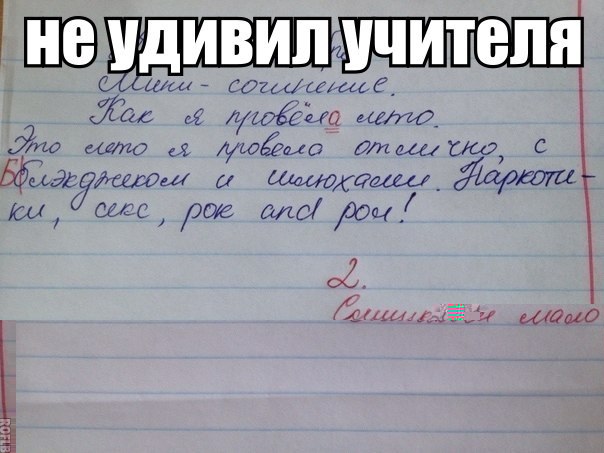 не удивил учителя
Мини-сочинение.
Как я провела лето.
Это лето я провела отлично, с
Блэкджеком и шлюхами. Наркоти-
ки, секс, рок and рол!
2.
мало
ROFLB